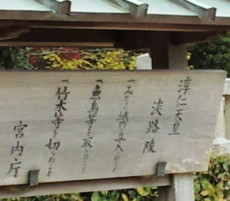 淳仁天皇
淡路陵
一、みだりに域内に立入らぬこと
一、魚鳥等を取らぬこと
一、竹木等を切らぬこと
宮内庁